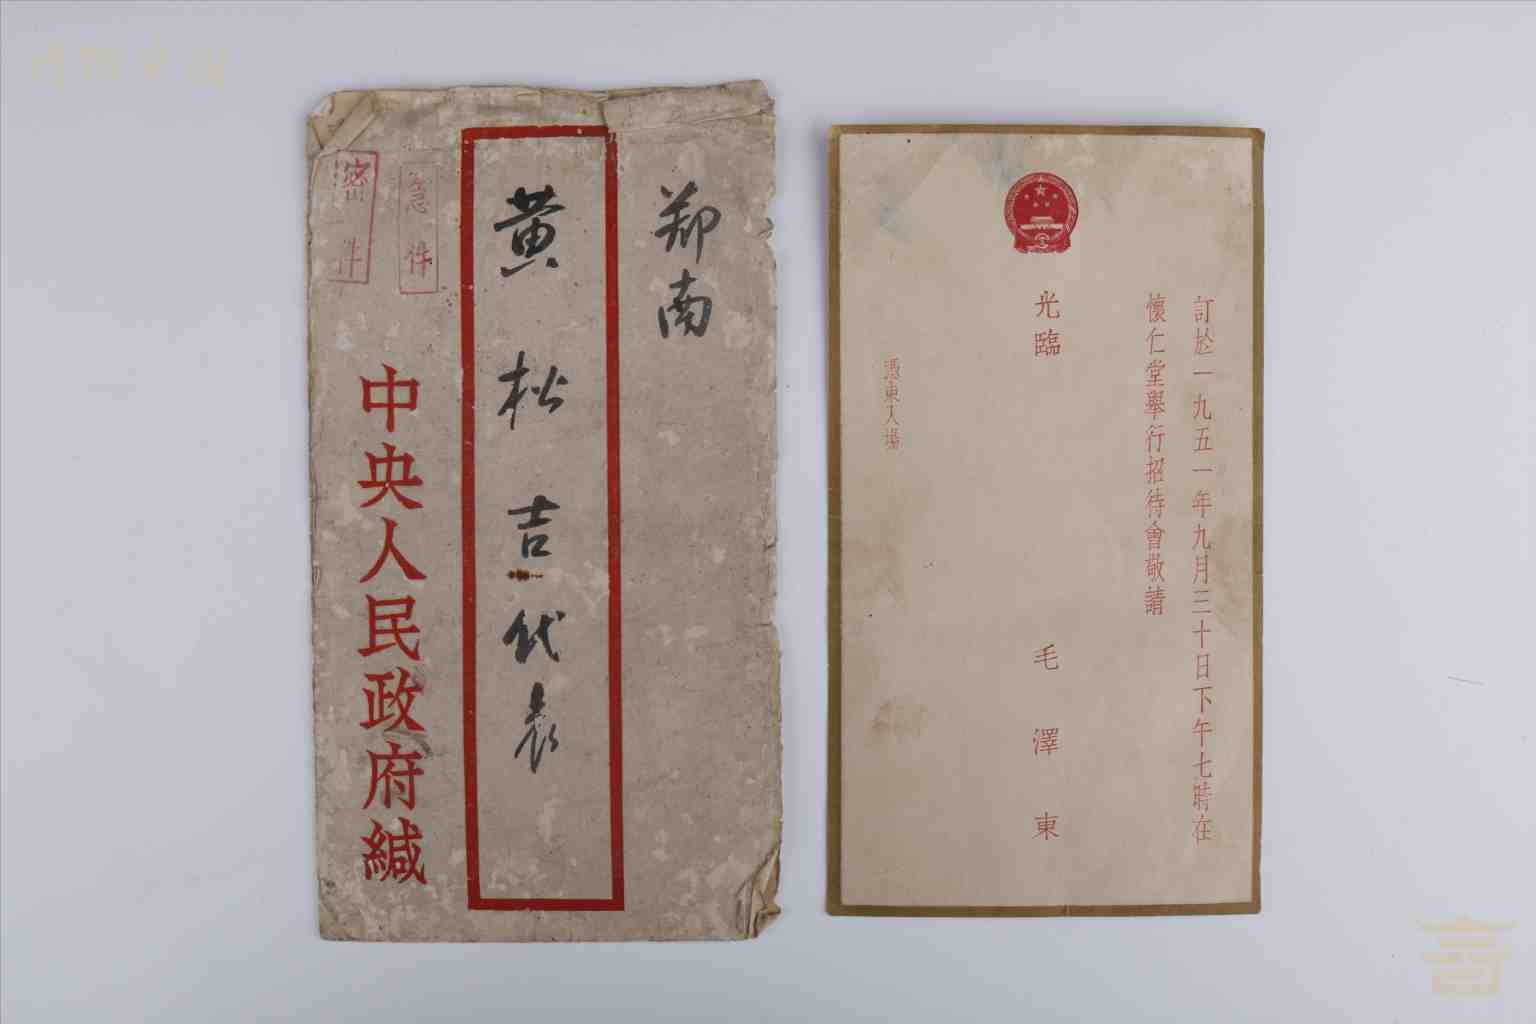 鄭南
黄松吉代表
急件
密件
中央人民政府緘
訂於一九五一年九月三十日下午七時在
懷仁堂舉行招待會敬請
光臨
毛澤東
憑柬入場